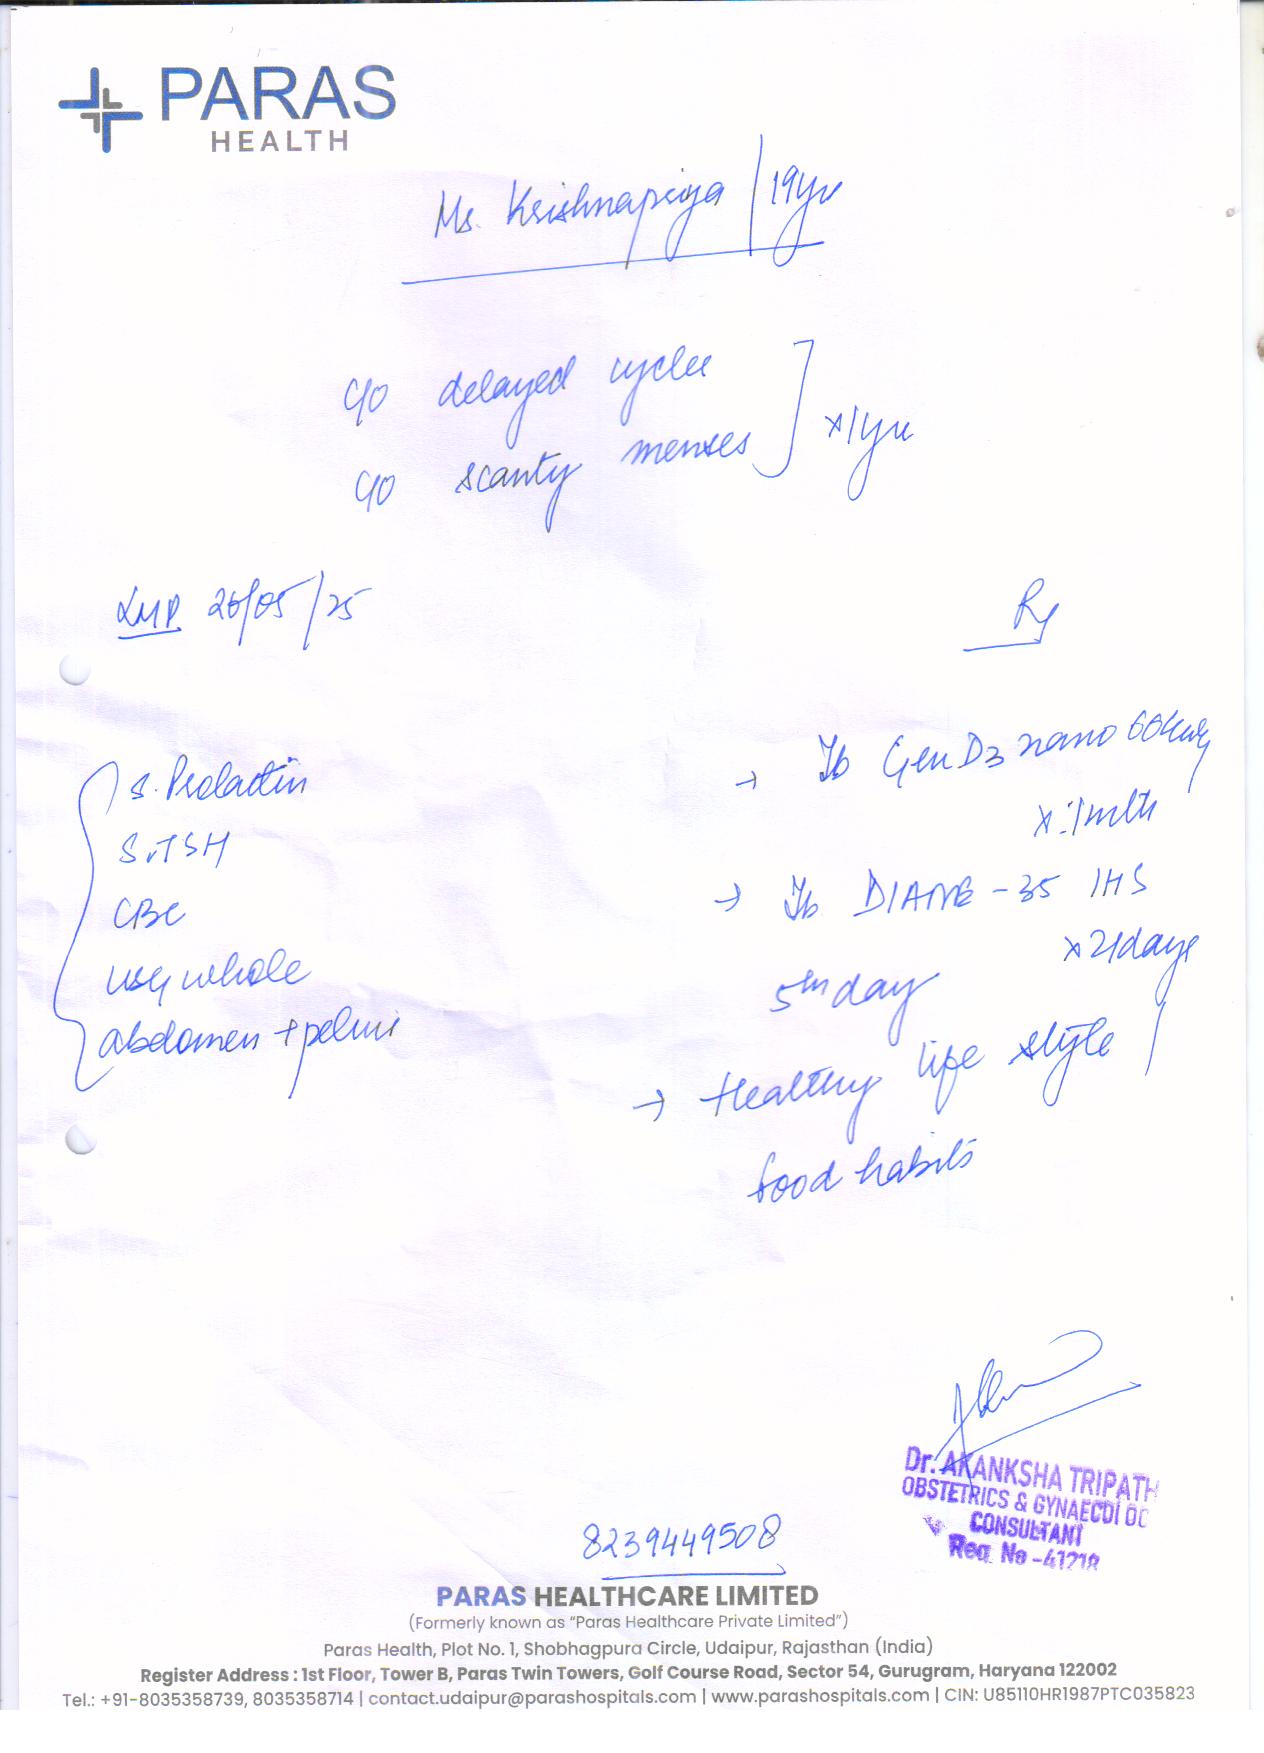 PARAS
HEALTH
Ms. Krishnapriya / 19yr
c/o delayed cycles
c/o scanty menses ] x 1yr
LMP 26/05/25
Rx
S. Prolactin
S. TSH
CBC
USG whole
abdomen + pelvis
→ Tb Gen D3 nano 60k
x 1mth
→ Tb DIANE-35 1HS
x 21days
5th day
→ Healthy life style
food habits
Dr. AKANKSHA TRIPATH
OBSTETRICS & GYNAECOLOG
CONSULTANT
Reg. No - 41218
8239449508
PARAS HEALTHCARE LIMITED
(Formerly known as “Paras Healthcare Private Limited”)
Paras Health, Plot No. 1, Shobhagpura Circle, Udaipur, Rajasthan (India)
Register Address : 1st Floor, Tower B, Paras Twin Towers, Golf Course Road, Sector 54, Gurugram, Haryana 122002
Tel.: +91-8035358739, 8035358714 | contact.udaipur@parashospitals.com | www.parashospitals.com | CIN: U85110HR1987PTC035823